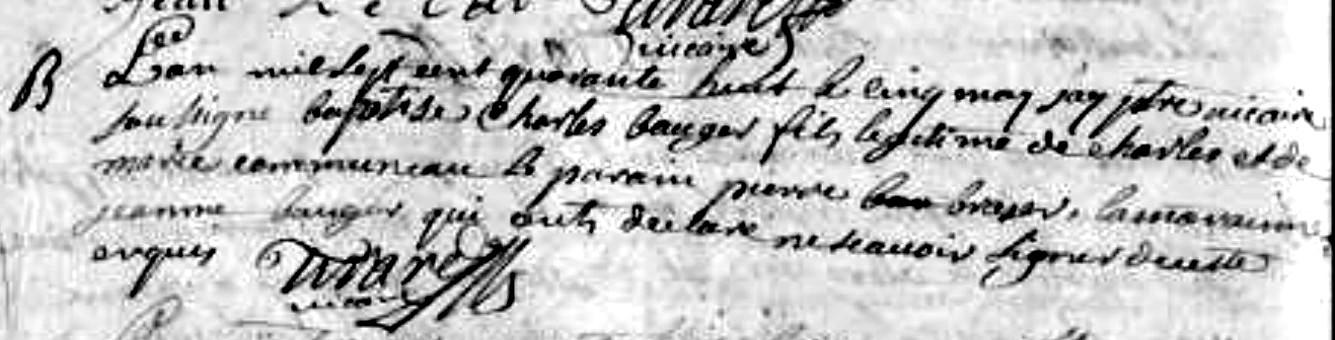 vicaire
B
L'an mil sept cent quarante huit le cinq may jay ptre vicaire
soussigné baptise Charles bauger fils legitime de charles et de
marie communeau le parain pierre brager, la marainne
jeanne bauger qui onts declare ne scauoir signer de cette
enquis
vicaire